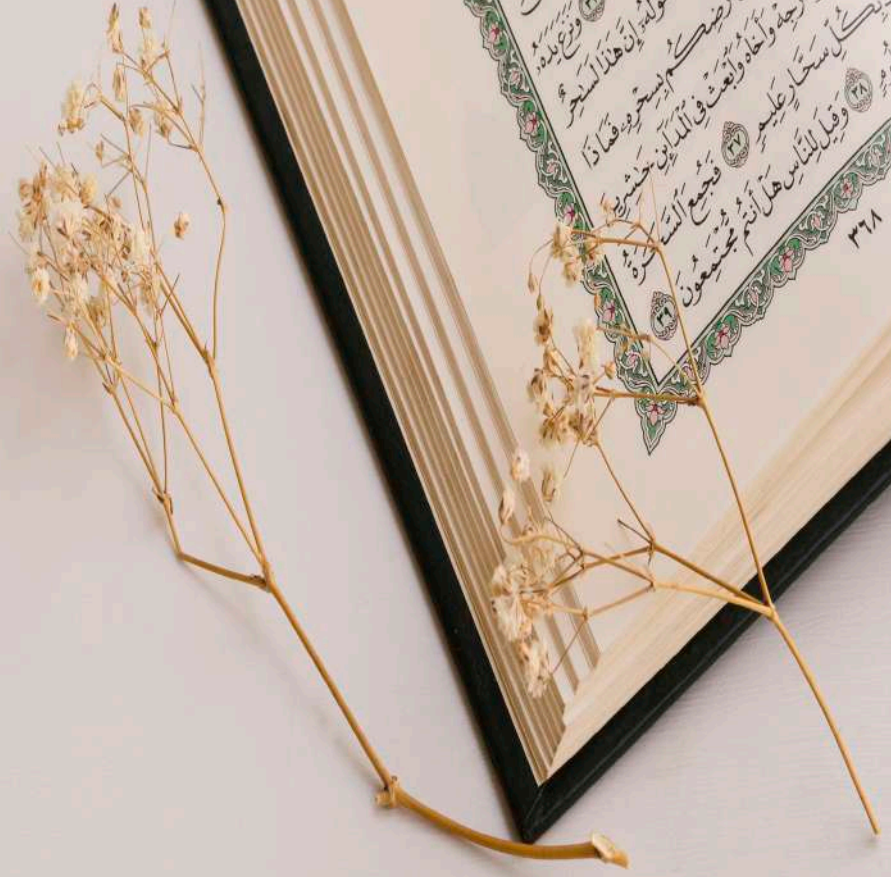 وَنَزَعَ يَدَهُۥ
إِنَّ هَٰذَا لَسَٰحِرٌ
أَرْضِكُم بِسِحْرِهِۦ فَمَاذَا
أَرْجِهْ وَأَخَاهُ وَٱبْعَثْ فِى ٱلْمَدَآئِنِ حَٰشِرِينَ
بِكُلِّ سَحَّارٍ عَلِيمٍ ٣٧ فَجُمِعَ ٱلسَّحَرَةُ
٣٨ وَقِيلَ لِلنَّاسِ هَلْ أَنتُم مُّجْتَمِعُونَ ٣٩
٣٦٨